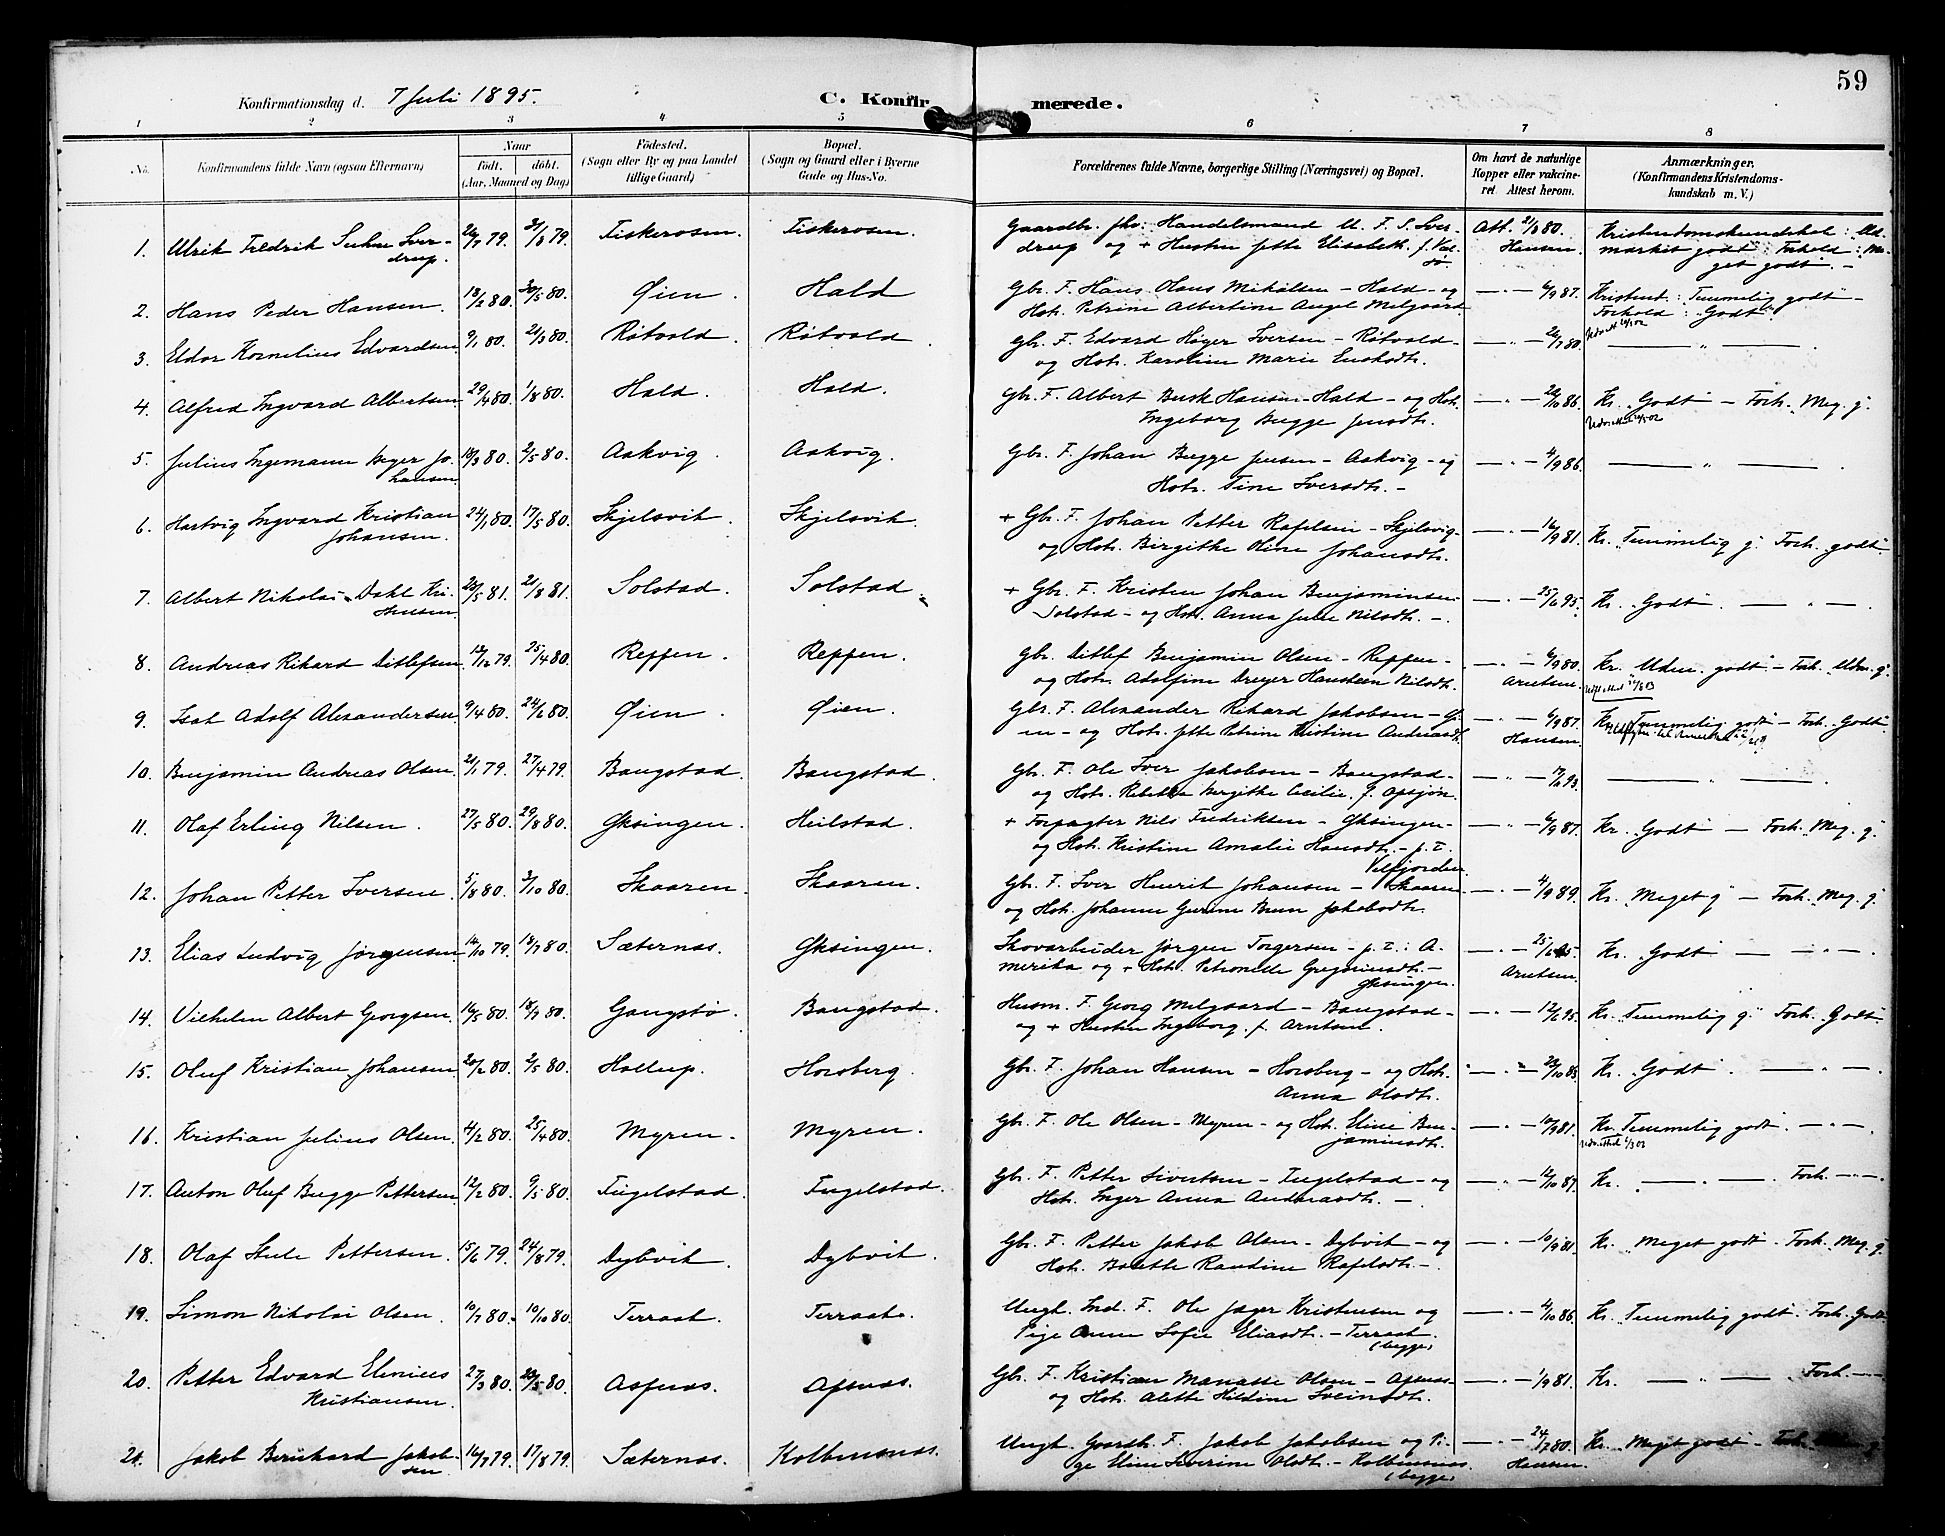 59
Konfirmationsdag d. 7 Juli 1895.
C. Konfirmerede.
1 2 3 4 5 6 7 8
No.
Konfirmandens fulde Navn (ogsaa Efternavn)
Naar
födt. döbt.
(Aar, Maaned og Dag)
Födested.
(Sogn eller By og paa Landet
tillige Gaard)
Bopæl.
(Sogn og Gaard eller i Byerne
Gade og Hus-No.
Forældrenes fulde Navne, borgerlige Stilling (Næringsvei) og Bopæl.
Om havt de naturlige
Kopper eller vakcine-
ret Attest herom.
Anmærkninger.
(Konfirmandens Kristendoms-
kundskab m. V.)
1. Ulrik Fredrik Suhm Sver- 26/7 79. 31/8 79 Fiskerosen. Fiskerosen. Gaardbr. fhv: Handelsmand U. F. S. Sver- Att. 2/8 80. Kristendomskundskab: Ud-
drup. drup og + Hustru Jette Elisabeth f. Hansen market godt: Forhold: Me-
get godt. –
2. Hans Peder Hansen. 18/2 80. 30/5 80. Øien. Hald Gbr. F. Hans Hans Mikalsen – Hald – og – " – 6/9 87. Kristend.: Temmelig godt –
Hstr. Petrine Albertine Angel Melgaard Forhold: Godt.
3. Eldor Kornelius Edvardsen 9/1 80. 21/3 80. Råtvold. Råtvold. Gbr. F. Edvard Høyer Iversen – Råtvold – – " – 26/7 80. — " —
og Hstr. Karoline Marie
4. Alfred Ingvard Albertsen 29/4 80. 1/8 80. Hald. Hald. Gbr. F. Albert Busk Hansen – Hald – og Hstr. – " – 20/10 86. Kr. Godt – Forh. Meg. g.
Ingeborg Bugge Jensdtr.
5. Julius Ingemann Beyer Jo- 18/3 80. 2/5 80. Aakvig. Aakvig. Gbr. F. Johan Bugge Jensen – Aakvig – og – " – 4/9 86. — " —
hansen. Hstr. Tine Iversdtr. –
6. Hartvig Ingvard Kristian 24/1 80. 17/5 80. Skjelsvik. Skjelsvik. + Gbr. F. Johan Petter Rafelsen – Skjelsvig – – " – 16/9 81. Kr. Temmelig g. Forh. godt
Johansen. og Hstr. Birgithe Oline Johansdtr.
7. Albert Nikolai Dahl Kri- 20/5 81. 21/8 81. Solstad. Solstad. + Gbr. F. Kristen Johan Benjaminsen – " – 25/6 95. Kr. Godt. – " –
stensen Solstad – og Hstr. Anna Julie Nilsdtr. –
8. Andreas Rikard Ditlefsen. 12/12 79. 25/4 80. Reppen. Reppen. Gbr. Ditlef Benjamin Olsen – Reppen – – " – 6/9 80. Kr. Udm. godt – Forh. Udm. g.
og Hstr. Adolfine Dreyer Hanstein Nilsdtr. Arntsen.
9. Isak Adolf Alexandersen 9/4 80. 24/6 80. Øien. Øien. Gbr. F. Alexander Rikard Jakobsen – Øi- – " – 6/9 87. Kr. Temmelig godt – Forh. Godt
en – og Hstr. Jette Petrine Kristine Andreasdtr. Hansen.
10. Benjamin Andreas Olsen 21/1 79. 27/4 79. Bangstad. Bangstad. Gbr. F. Ole Iver Jakobsen – Bangstad – – " – — " —
og Hstr. Rebekka Bergithe Cecilie, f. Opsjøn.
11. Olaf Erling Nilsen. 27/5 80. 29/8 80. Gksingen. Heilstad. + Forpagter Nils Fredriksen – Gksingen – – " – 6/9 87. Kr. Godt – Forh. Meg. g.
og Hstr. Kristine Amalie Hansdtr. – p. t.
Velfjorden
12. Johan Petter Iversen. 5/8 80. 3/10 80. Skaaren. Skaaren. Gbr. F. Iver Henrik Johansen – Skaaren – " – 4/9 89. Kr. Meget g – Forh. Meg. g.
og Hstr. Johanne Gurine Brun Jakobsdtr.
13. Elias Ludvig Jørgensen 14/10 79. 18/7 80. Sæternæs. Gksingen. Skovarbeider Jørgen Torgersen – p. t.: A- – " – 25/6 95. Kr. Godt – " –
merika og + Hstr. Petronelle Gregoriusdtr. – Arntsen.
Gksingen.
14. Vilhelm Albert Georgsen. 16/5 80. 18/7 80. Gangstø. Bangstad. Husm. F. Georg Melgaard – Bangstad – – " – 12/6 95. Kr. Temmelig g. Forh. Godt
og + Hustru Ingeborg f. Arntsen.
15. Oluf Kristian Johansen. 20/2 80. 2/5 80. Hollup. Horsberg. Gbr. F. Johan Hansen – Horsberg – og Hstr. – " – 23/10 88. Kr. Godt. – " –
Anna Olsdtr.
16. Kristian Julius Olsen. 4/2 80. 25/4 80. Myren. Myren. Gbr. F. Ole Olsen – Myren – og Hstr. Eline Ben- – " – 10/9 81. Kr. Temmelig godt. – " –
jaminsdtr.
17. Anton Oluf Bugge Pettersen. 12/2 80. 9/5 80. Tugelstad. Tugelstad. Gbr. F. Petter Sivertsen – Tugelstad – og – " – 12/10 87. Kr. — " — Forh. – " –
Hstr. Inger Anna Andreasdtr. –
18. Olaf Skule Pettersen. 15/6 79. 24/8 79. Dybvik. Dybvik. Gbr. F. Petter Jakob Olsen – Dybvik – og – " – 10/9 81. Kr. Meget godt – Forh. Meg. g.
Hstr. Boratte Randine Rafelsdtr. –
19. Simon Nikolai Olsen. 10/7 80. 10/10 80. Terraat. Terraat. Ungk. Ind. F. Ole Jæger Kristensen og – " – 4/10 86. Kr. Temmelig godt. Forh. Godt
Pige Anne Sofie Eliasdt. – Terraat.
(begge)
20. Petter Edvard Elenius 27/3 80. 20/5 80. Aspnæs. Apsnæs. Gbr. F. Kristian Manasse Olsen – Apsnæs – " – 1/9 81. Kr. — " — Forh. – " –
Kristiansen. og Hstr. Alette Hildine Sveinsdtr.
21. Jakob Bernhard Jakob- 16/7 79. 17/8 79. Sæternæs. Kolbensnæs. Ungk. Gaardb. F. Jakob Jakobsen og Pi- – " – 24/7 80. Kr. Meget godt – Forh.
sen. ge Eline Severine Olsdt. – Kolbensnæs. Hansen.
(begge)